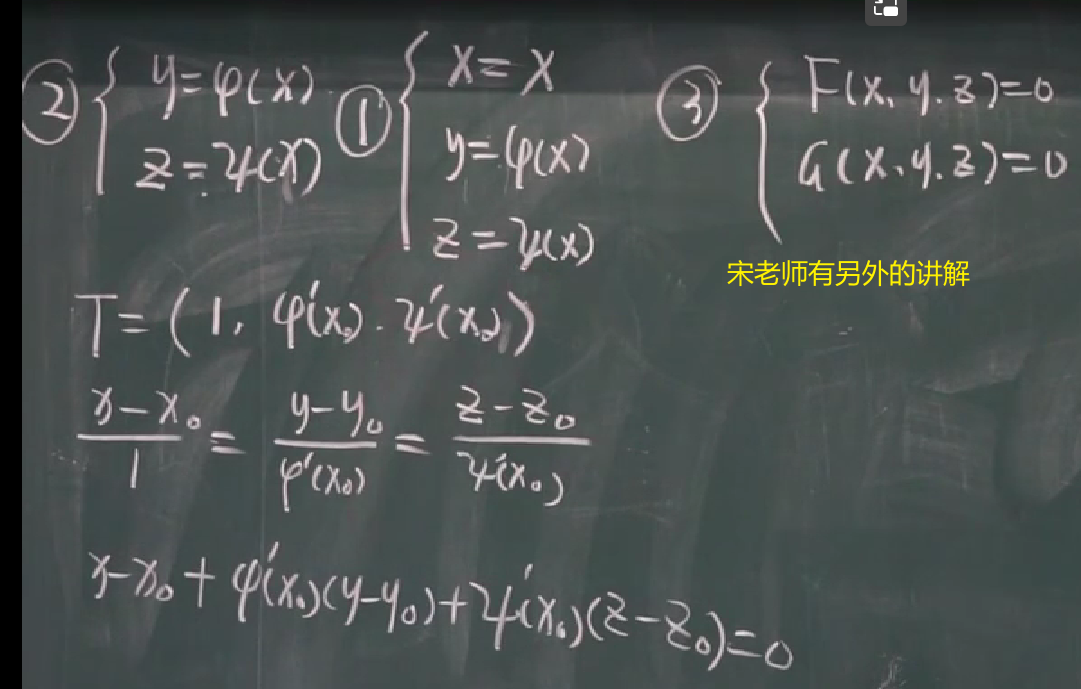 ② { y=φ(x)
z=ψ(x)
① { x=x
y=φ(x)
z=ψ(x)
③ { F(x,y,z)=0
G(x,y,z)=0
宋老师有另外的讲解
T=(1, φ′(x₀), ψ′(x₀))
(x-x₀)/1 = (y-y₀)/φ′(x₀) = (z-z₀)/ψ′(x₀)
x-x₀+φ′(x₀)(y-y₀)+ψ′(x₀)(z-z₀)=0